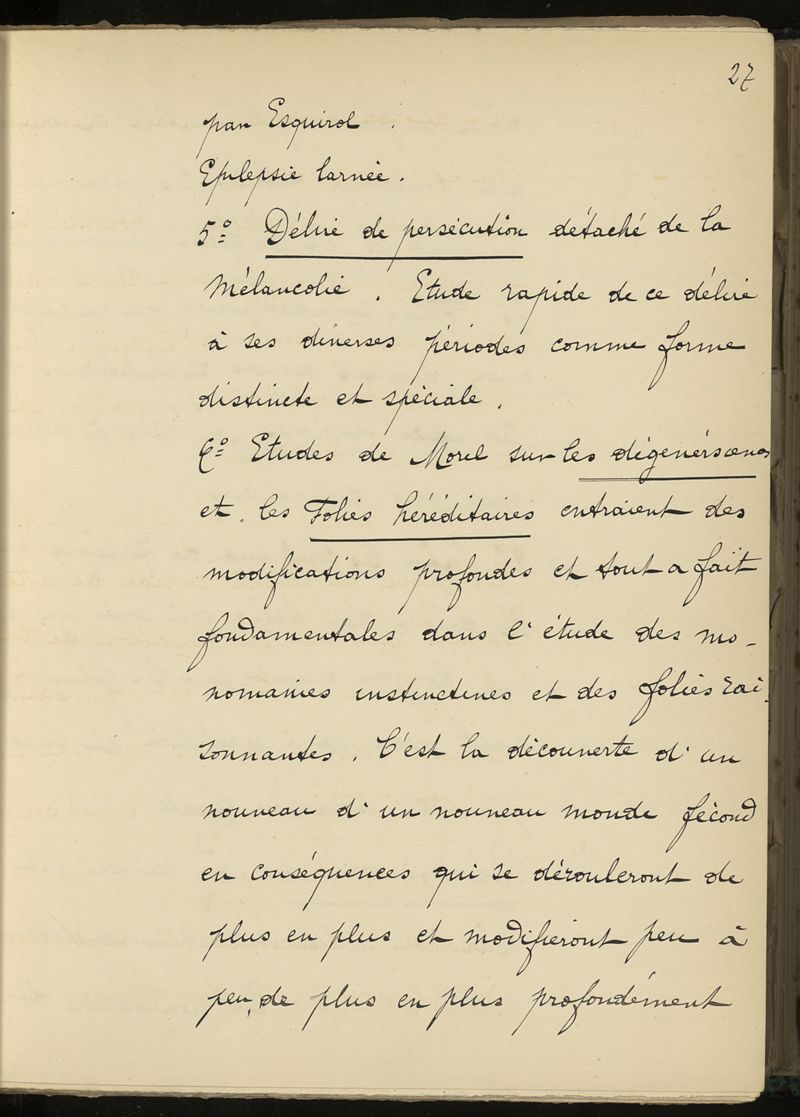 27
par Esquirol.
Epilepsie larvée.
5º Délire de persécution détaché de la
Mélancolie. Etude rapide de ce délire
à ses diverses périodes comme forme
distincte et spéciale.
6º Etudes de Morel sur les dégénérscences
et les Folies héréditaires entraient des
modifications profondes et tout a fait
fondamentales dans l'étude des mo-
nomanies instinctives et des folies rai-
sonnantes. C'est la découverte d'un
nouveau d'un nouveau monde fécond
en conséquences qui se dérouleront de
plus en plus et modifieront peu à
peu, de plus en plus profondément